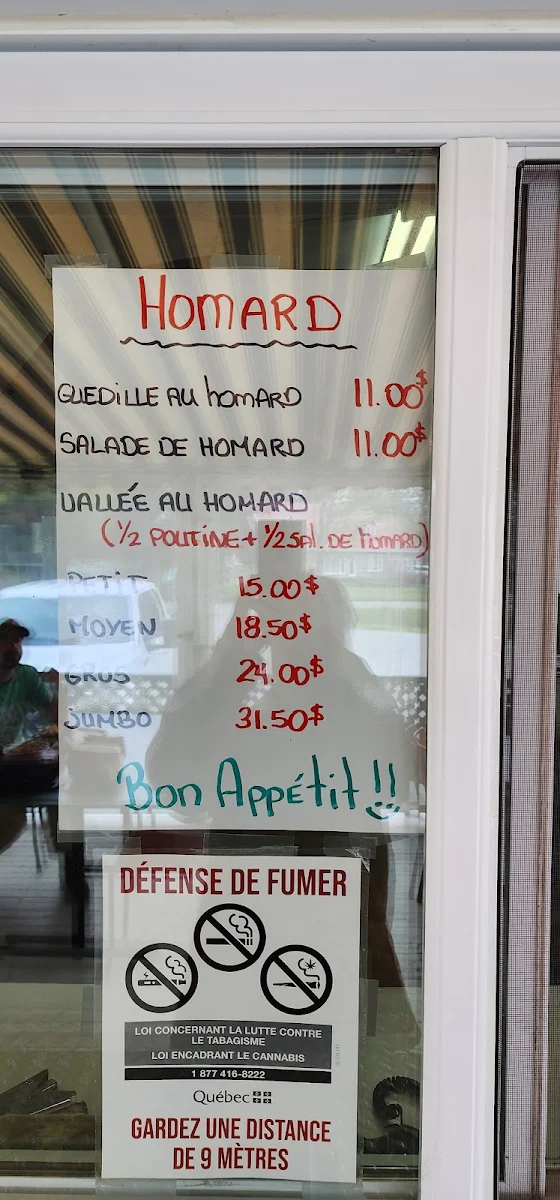 HOMARD
GUEDiLLE AU homARD 11.00$
SALADE DE HOMARD 11.00$
VALLÉE AU HOMARD
(1/2 POUTiNE + 1/2 SAl. DE homARD)
PETiT 15.00$
MOYEN 18.50$
GROS 24.00$
JUMBO 31.50$
Bon Appétit !!
DÉFENSE DE FUMER
LOI CONCERNANT LA LUTTE CONTRE
LE TABAGISME
LOI ENCADRANT LE CANNABIS
1 877 416-8222
Québec
GARDEZ UNE DISTANCE
DE 9 MÈTRES